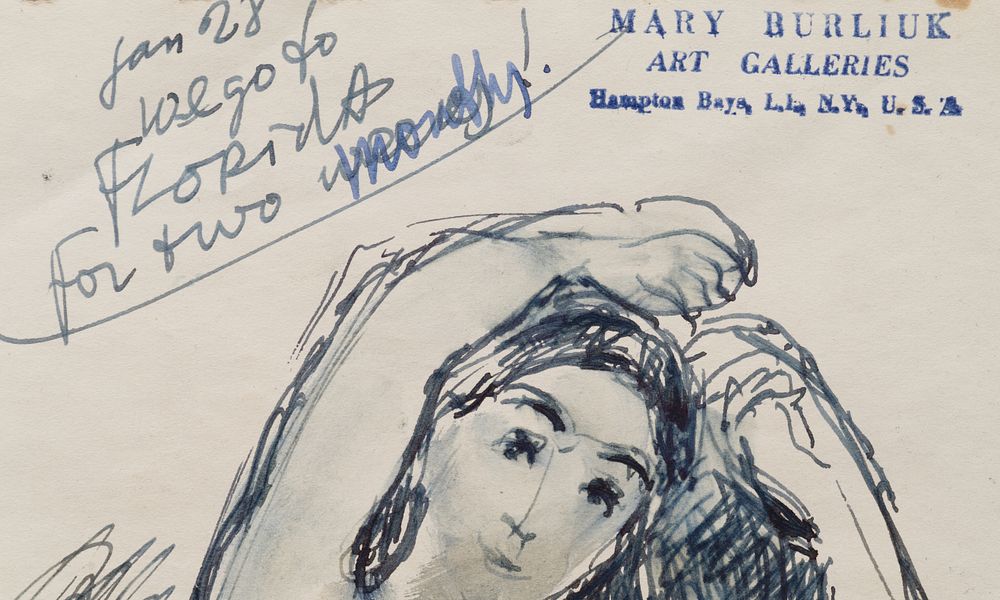 jan 28
we go to
FLORidA
For two months!
MARY BURLIUK
ART GALLERIES
Hampton Bays, L.I., N.Y., U. S. A